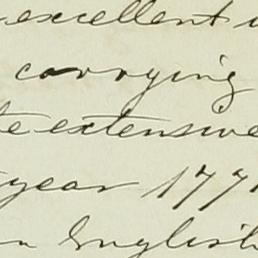 excellent
carrying
extensive
year 177
English